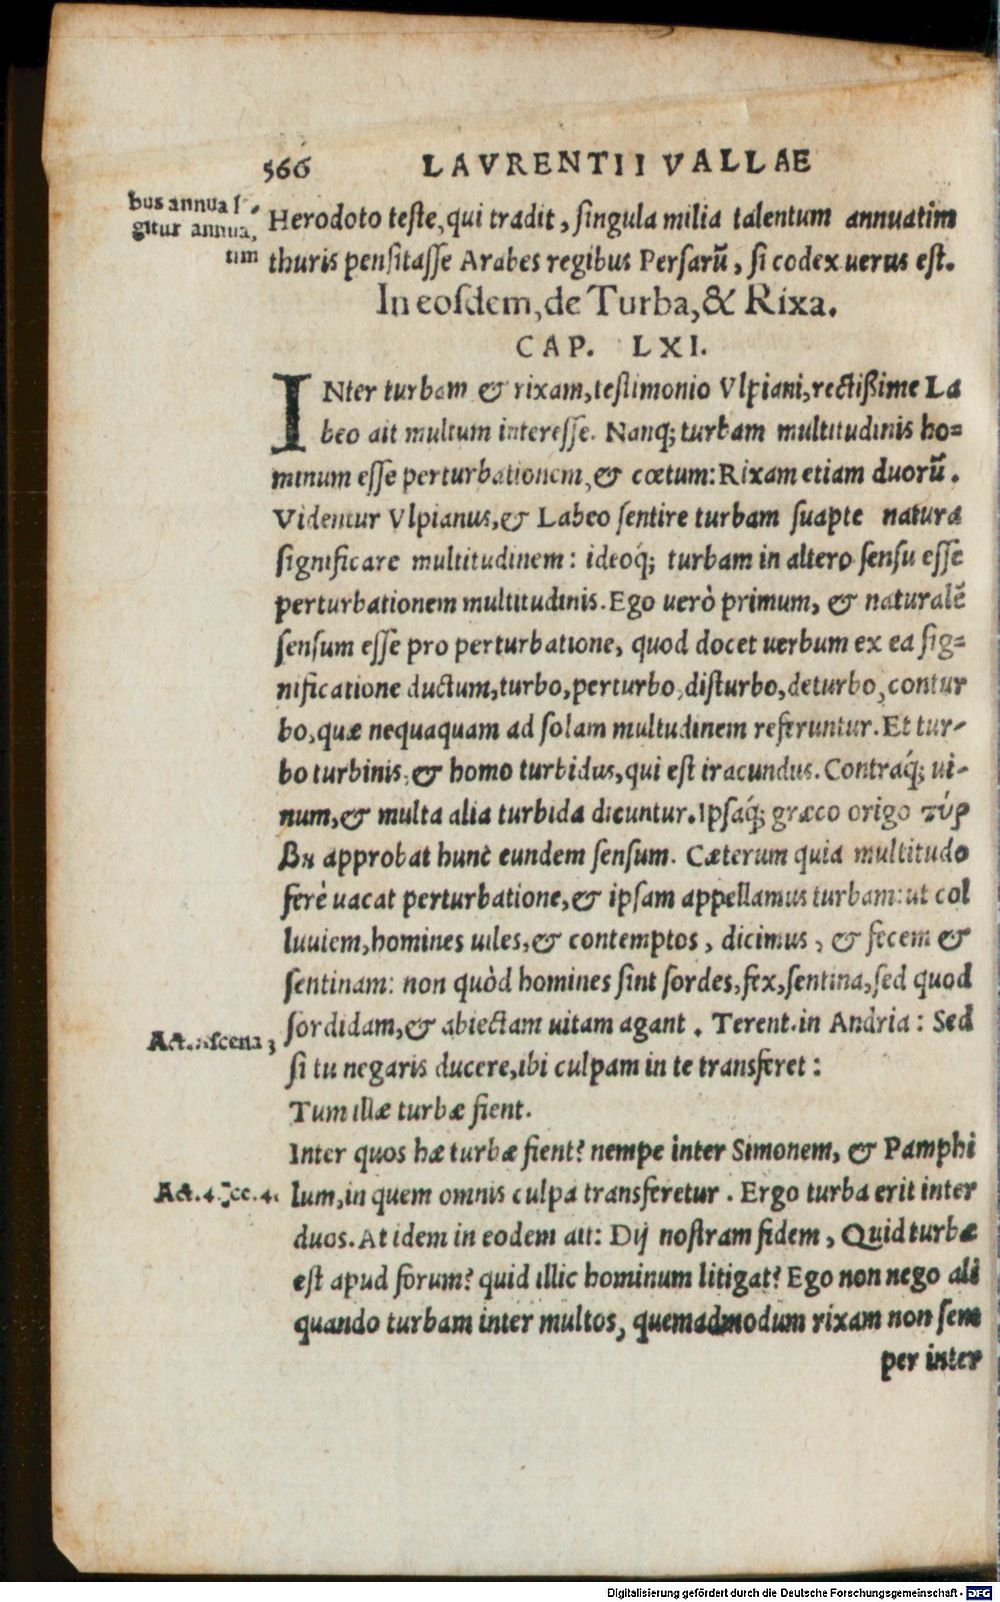 566 LAVRENTII VALLAE
bus annua l
gitur annua,
tim
Herodoto teste, qui tradit, singula milia talentum annuatim
thuris pensitasse Arabes regibus Persarũ, si codex uerus est.
In eosdem, de Turba, & Rixa.
CAP. LXI.
INter turbam & rixam, testimonio Vlpiani, rectißime La
beo ait multum interesse. Nanq; turbam multitudinis ho=
minum esse perturbationem, & cœtum: Rixam etiam duorũ.
Videntur Vlpianus, & Labeo sentire turbam suapte natura
significare multitudinem: ideoq́; turbam in altero sensu esse
perturbationem multitudinis. Ego uerò primum, & naturalẽ
sensum esse pro perturbatione, quod docet uerbum ex ea sig=
nificatione ductum, turbo, perturbo, disturbo, deturbo, contur
bo, quæ nequaquam ad solam multudinem referuntur. Et tur-
bo turbinis, & homo turbidus, qui est iracundus. Contraq́; ui-
num, & multa alia turbida dicuntur. Ipsaq́; græco origo τύρ
βη approbat hunc eundem sensum. Cæterum quia multitudo
ferè uacat perturbatione, & ipsam appellamus turbam: ut col
luuiem, homines uiles, & contemptos, dicimus, & fecem &
sentinam: non quòd homines sint sordes, fex, sentina, sed quod
sordidam, & abiectam uitam agant. Terent. in Andria: Sed
Act. scena 3
si tu negaris ducere, ibi culpam in te transferet:
Tum illæ turbæ fient.
Inter quos hæ turbæ fient? nempe inter Simonem, & Pamphi
Act. 4. sce. 4.
lum, in quem omnis culpa transferetur. Ergo turba erit inter
duos. At idem in eodem ait: Dij nostram fidem, Quid turbæ
est apud forum? quid illic hominum litigat? Ego non nego ali
quando turbam inter multos, quemadmodum rixam non sem
per inter
Digitalisierung gefördert durch die Deutsche Forschungsgemeinschaft - DFG